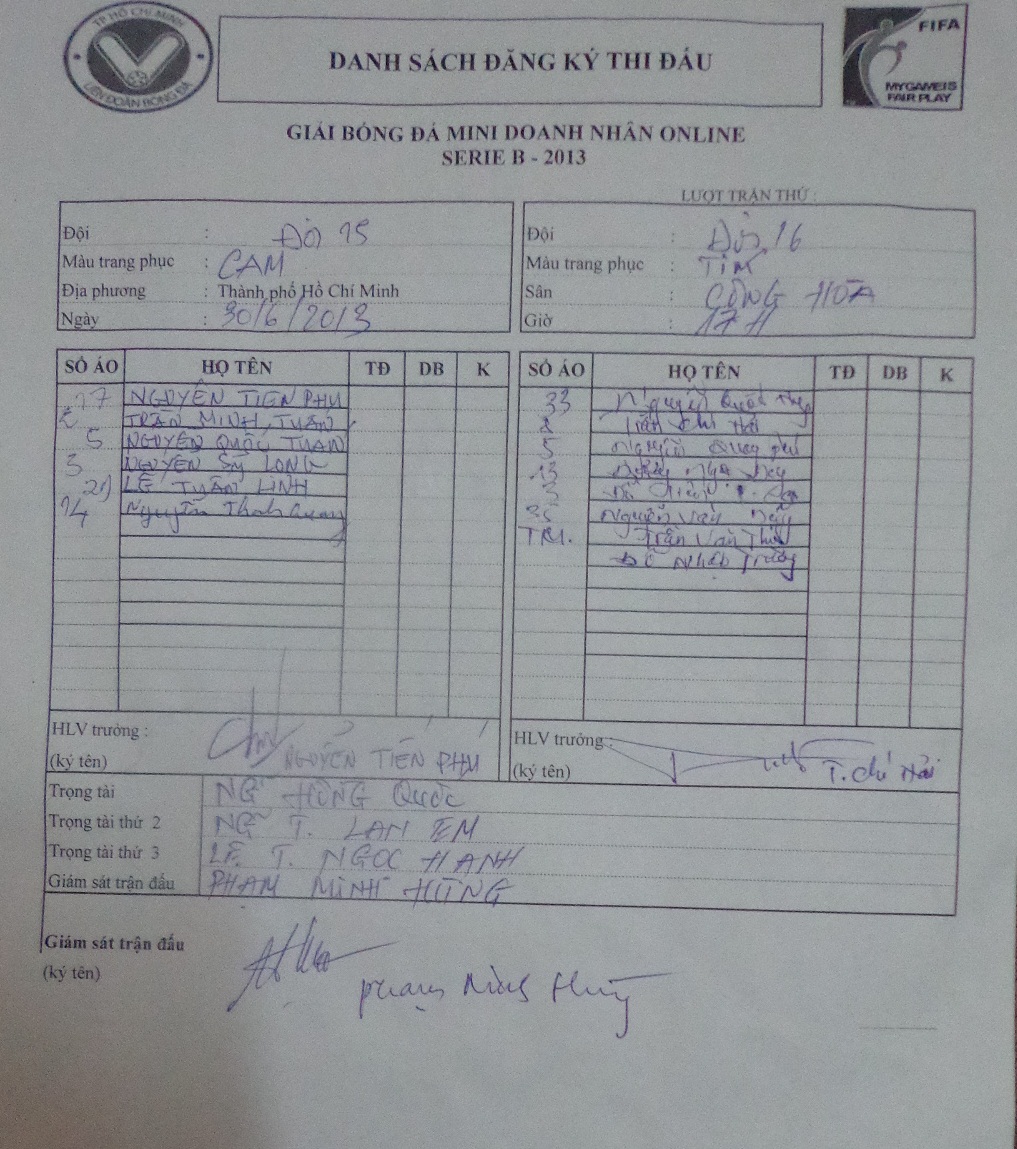 TP HỒ CHÍ MINH
LIÊN ĐOÀN BÓNG ĐÁ
DANH SÁCH ĐĂNG KÝ THI ĐẤU
FIFA
MY GAME IS
FAIR PLAY
GIẢI BÓNG ĐÁ MINI DOANH NHÂN ONLINE
SERIE B - 2013
LƯỢT TRẬN THỨ :
Đội :
Màu trang phục : CAM
Địa phương : Thành phố Hồ Chí Minh
Ngày : 30/6/2013
Đội : 16
Màu trang phục : TÍM
Sân : CỘNG HÒA
Giờ : 17H
SỐ ÁO HỌ TÊN TĐ DB K
17 NGUYỄN TIẾN PHU
TRẦN MINH TUẤN
5 NGUYỄN QUỐC TUẤN
3 NGUYỄN SỸ LONG
21 LÊ TUẤN LINH
14 Nguyễn Thanh Quang
SỐ ÁO HỌ TÊN TĐ DB K
33 Nguyễn Quốc
Trần Chí Hải
5 Nguyễn Quang
13
3
Nguyễn Văn
TM. Trần Văn
HLV trưởng :
(ký tên) NGUYỄN TIẾN PHU
HLV trưởng :
(ký tên) T. Chí Hải
Trọng tài NG HỒNG Quốc
Trọng tài thứ 2 NG T. LAN EM
Trọng tài thứ 3 LÊ T. NGỌC HẠNH
Giám sát trận đấu PHẠM MINH HÙNG
Giám sát trận đấu
(ký tên)
phạm Minh Hùng